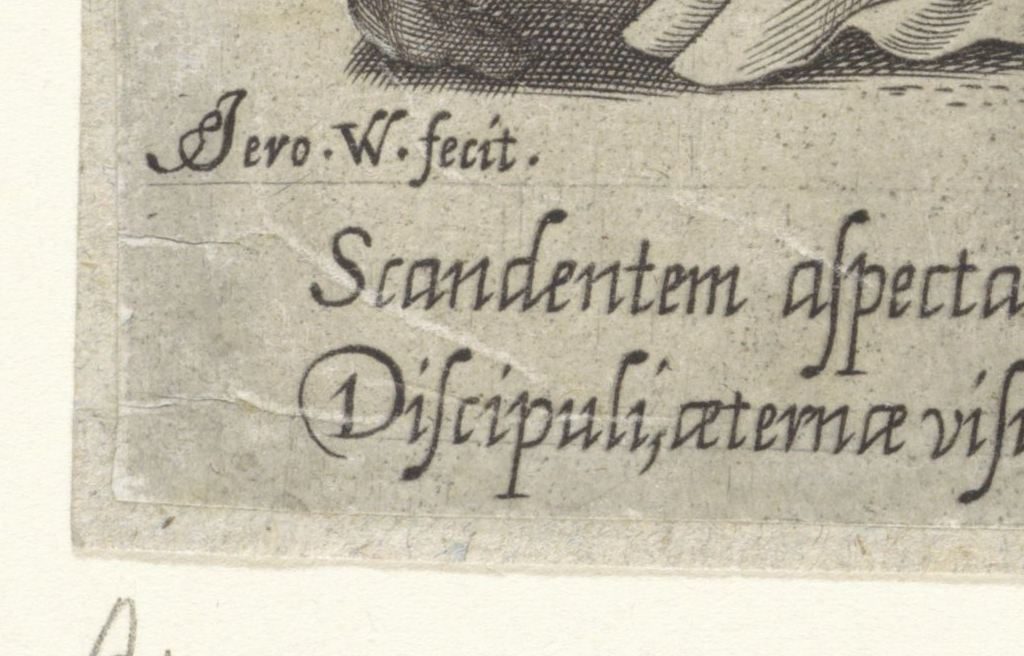 Jero . W. fecit .
Scandentem aſpecta
Diſcipuli, æternæ viſ